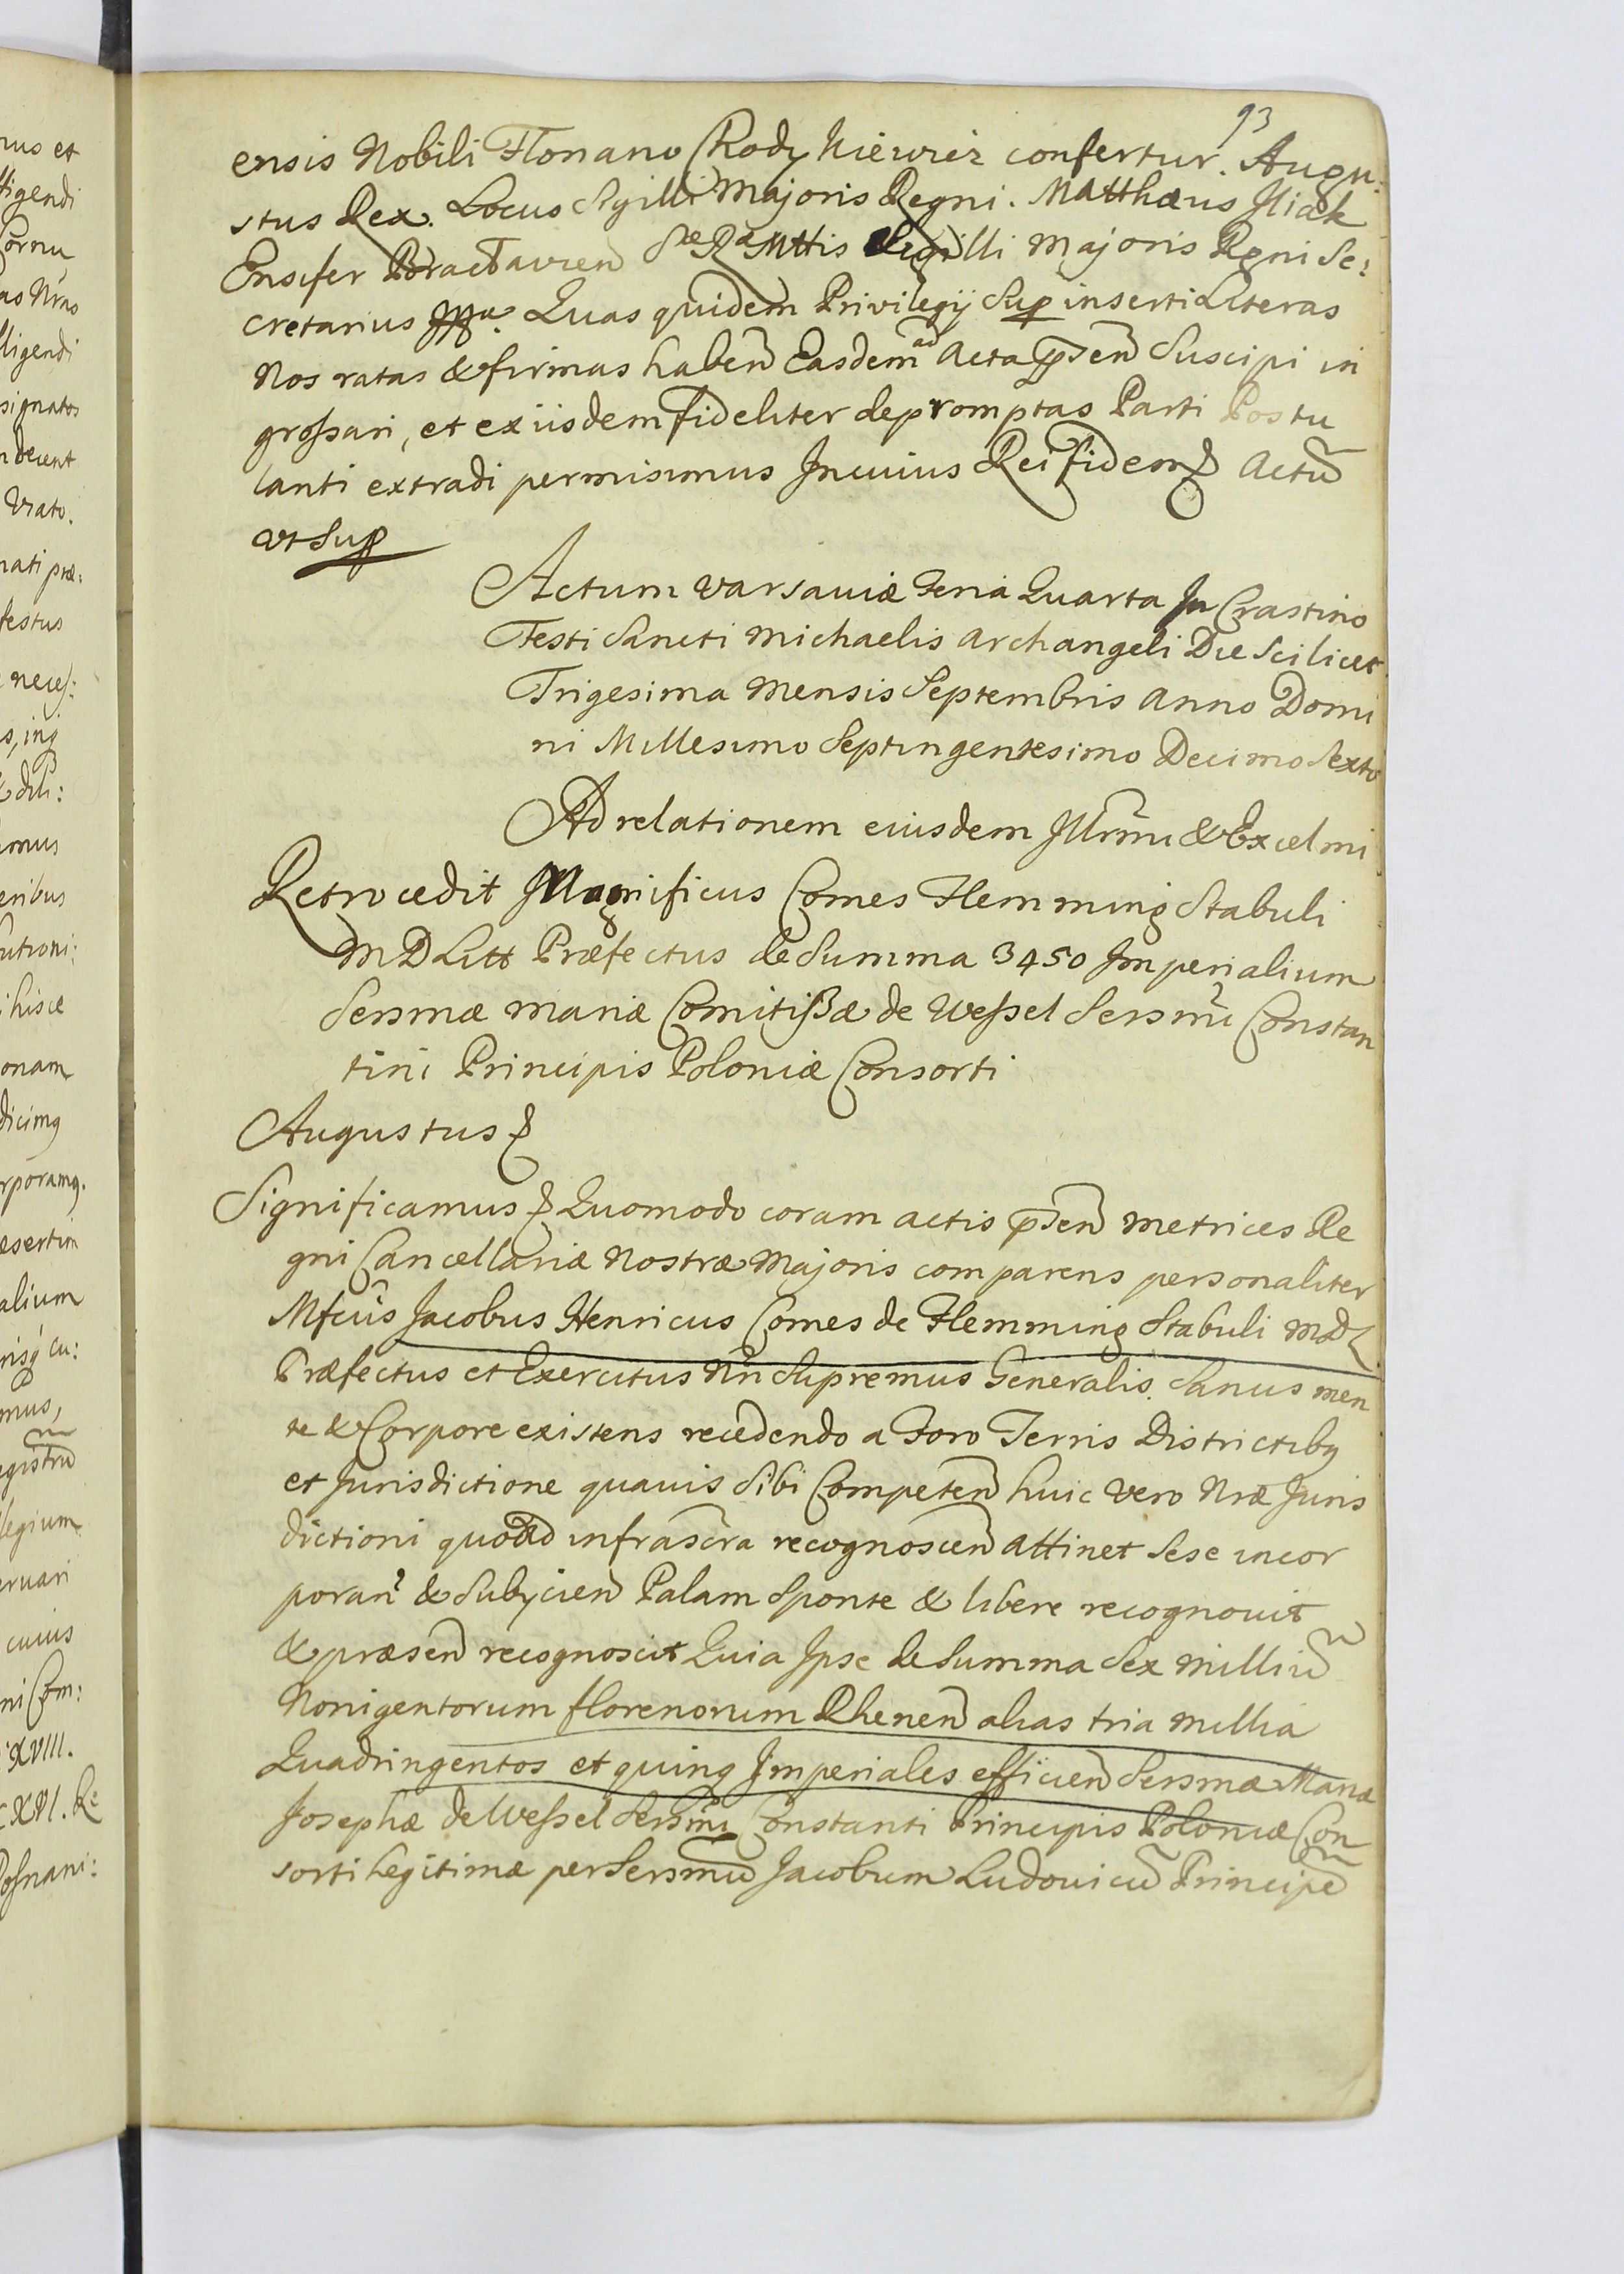 93
ensis Nobili Floriano Rodkiewicz confertur. Augu:
stus Rex. Locus Sigilli Majoris Regni. Matthæus Iliak
Ensifer Bractavien Sæ Ra Mttis Sigilli Majoris Rgni Se:
cretarius mpa. Quas quidem Privilegij Sup inserti Literas
Nos ratas & firmas haben Easdem ad Acta psen Suscipi in
grossari, et ex iisdem fideliter depromptas Parti Postu
lanti extradi permisimus In cuius Rei fidem Actu
vt Sup
Actum Varsaviæ Feria Quarta In Crastino
Festi Sancti Michaelis Archangeli Die Scilicet
Trigesima Mensis Septembris Anno Domi
ni Millesimo Septingentesimo Decimo Sexto
Ad relationem eiusdem Illrmi & Excelmi
Retrocedit Magnificus Comes Flemming Stabuli
M D Litt Præfectus de Summa 3450 Imperialium
Sersmæ Mariæ Comitissæ de Wessel Sersmi Constan
tini Principis Poloniæ Consorti
Augustus
Significamus Quomodo coram actis psen Metrices Re
gni Cancellariæ Nostræ Majoris comparens personaliter
Mfcus Jacobus Henricus Comes de Flemming Stabuli MDL
Præfectus et Exercitus Nri Supremus Generalis Sanus men
te & Corpore existens recedendo a Foro Terris Districtibq
et Jurisdictione quavis Sibi Competen huic vero Nræ Juris
dictioni quoad infrascra recognoscen attinet Sese incor
poran & Subijcien Palam Sponte & libere recognovit
& præsen recognoscit Quia Ipse de Summa Sex Milliu
Nonigentorum florenorum Rhenen alias tria Millia
Quadringentos et quinq Imperiales efficien Sersmæ Mariæ
Josephæ de Wessel Sersmi Constanti Principis Poloniæ Con
sorti Legitimæ per Sersmu Jacobum Ludovicu Principe